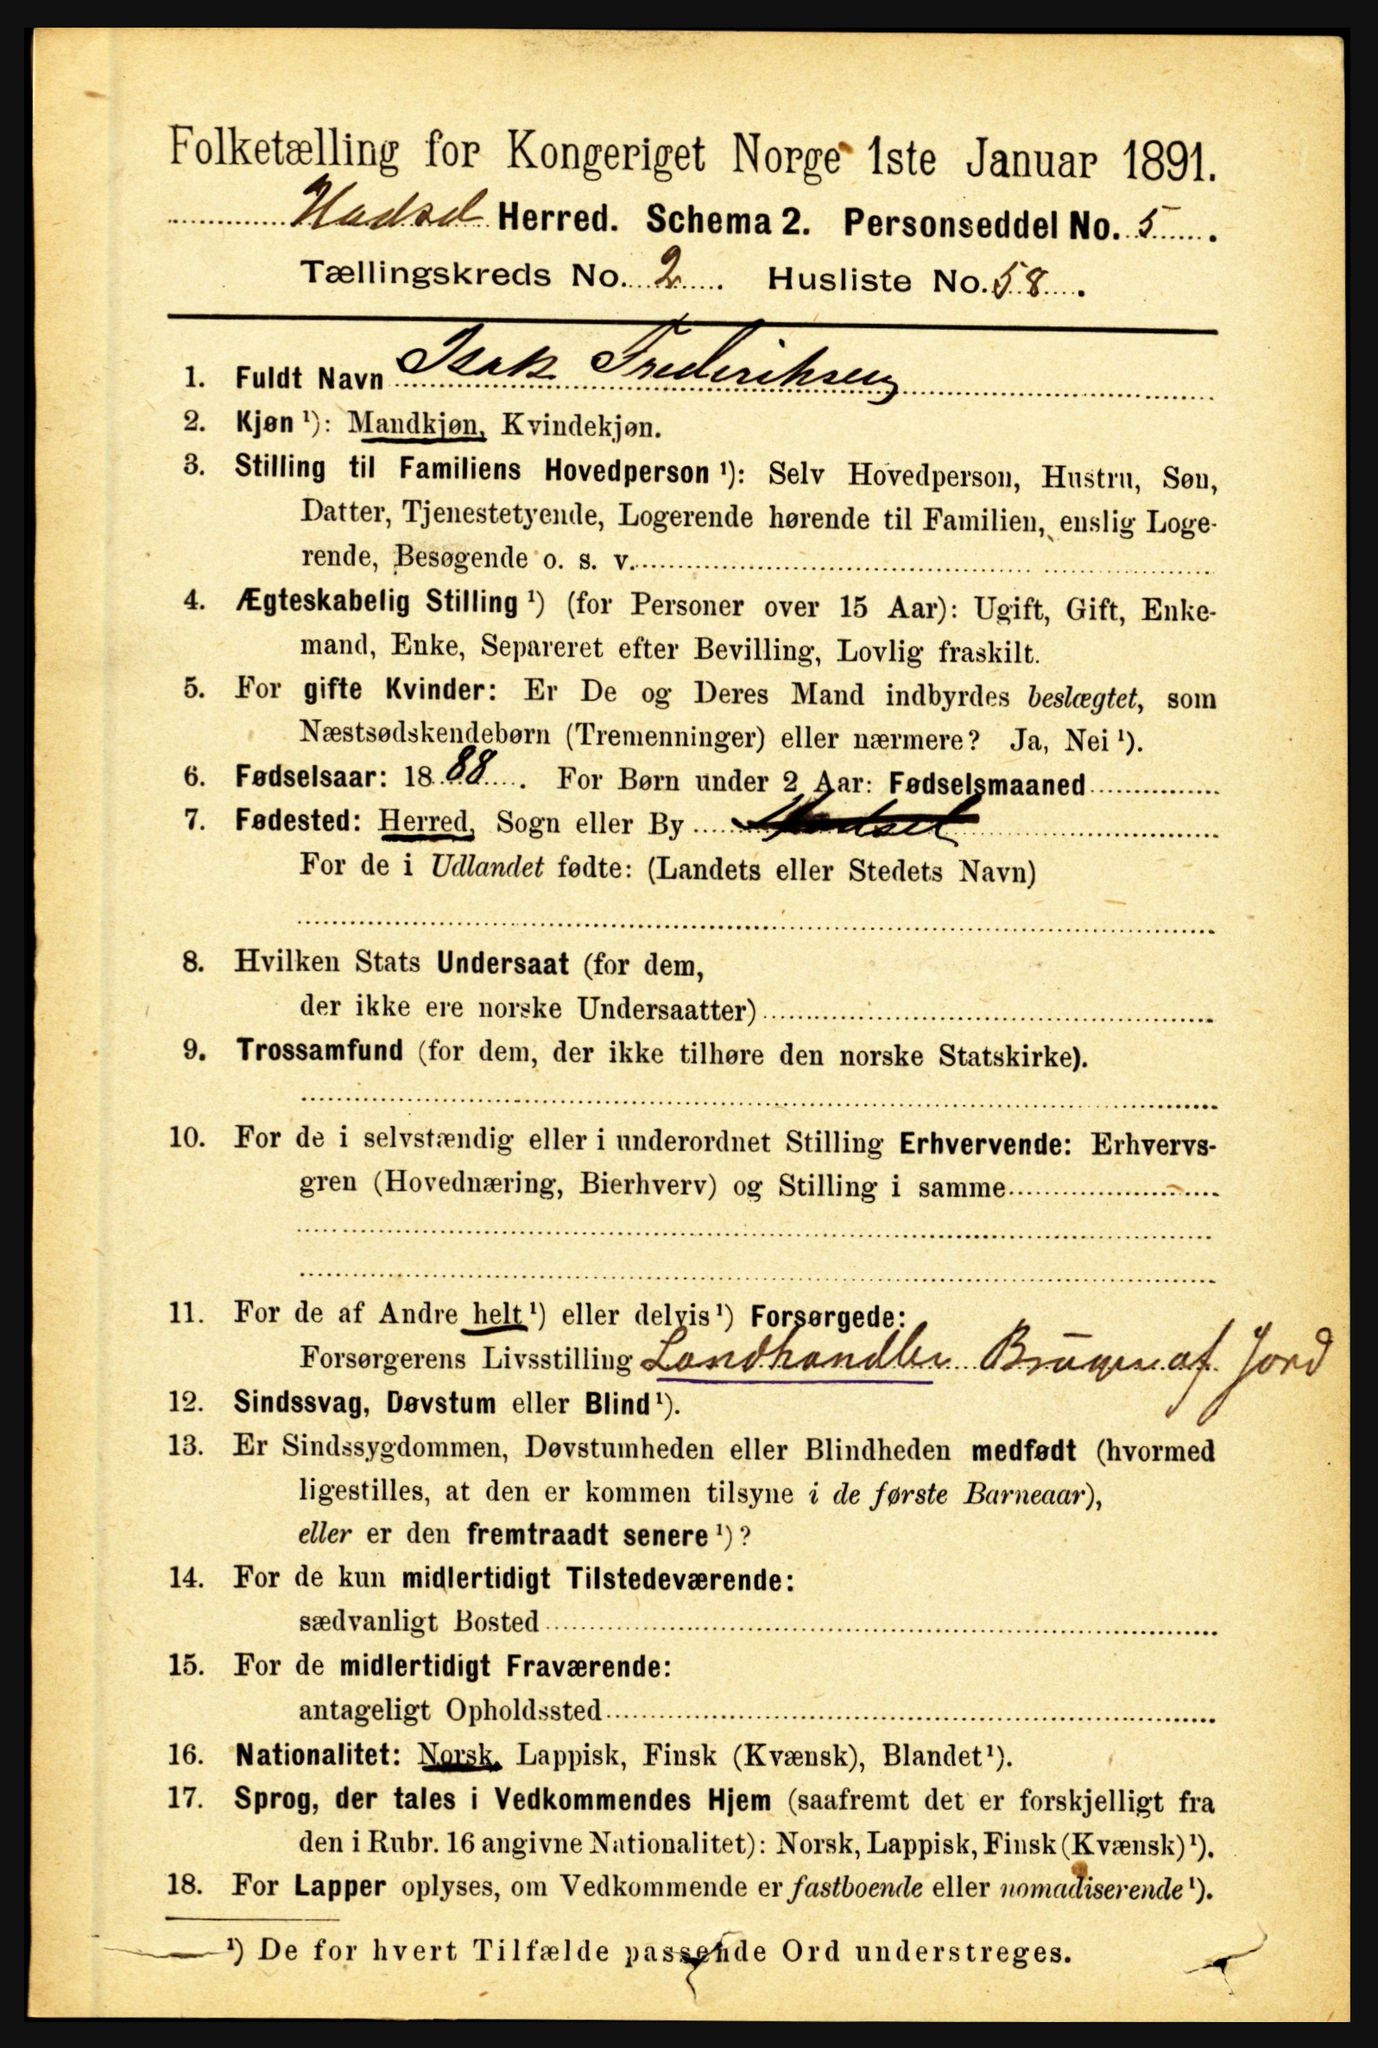 Folketælling for Kongeriget Norge 1ste Januar 1891.
Hadsel Herred. Schema 2. Personseddel No. 5.
Tællingskreds No. 2. Husliste No. 58.
1. Fuldt Navn Isak Frederiksen
2. Kjøn ¹): Mandkjøn, Kvindekjøn.
3. Stilling til Familiens Hovedperson ¹): Selv Hovedperson, Hustru, Søn,
Datter, Tjenestetyende, Logerende hørende til Familien, enslig Loge-
rende, Besøgende o. s. v.
4. Ægteskabelig Stilling ¹) (for Personer over 15 Aar): Ugift, Gift, Enke-
mand, Enke, Separeret efter Bevilling, Lovlig fraskilt.
5. For gifte Kvinder: Er De og Deres Mand indbyrdes beslægtet, som
Næstsødskendebørn (Tremenninger) eller nærmere? Ja, Nei ¹).
6. Fødselsaar: 1888. For Børn under 2 Aar: Fødselsmaaned
7. Fødested: Herred, Sogn eller By Hadsel
For de i Udlandet fødte: (Landets eller Stedets Navn)
8. Hvilken Stats Undersaat (for dem,
der ikke ere norske Undersaatter)
9. Trossamfund (for dem, der ikke tilhøre den norske Statskirke).
10. For de i selvstændig eller i underordnet Stilling Erhvervende: Erhvervs-
gren (Hovednæring, Bierhverv) og Stilling i samme
11. For de af Andre helt ¹) eller delvis ¹) Forsørgede:
Forsørgerens Livsstilling Landhandler Bruger af Jord
12. Sindssvag, Døvstum eller Blind ¹).
13. Er Sindssygdommen, Døvstumheden eller Blindheden medfødt (hvormed
ligestilles, at den er kommen tilsyne i de første Barneaar),
eller er den fremtraadt senere ¹)?
14. For de kun midlertidigt Tilstedeværende:
sædvanligt Bosted
15. For de midlertidigt Fraværende:
antageligt Opholdssted
16. Nationalitet: Norsk, Lappisk, Finsk (Kvænsk), Blandet ¹).
17. Sprog, der tales i Vedkommendes Hjem (saafremt det er forskjelligt fra
den i Rubr. 16 angivne Nationalitet): Norsk, Lappisk, Finsk (Kvænsk) ¹).
18. For Lapper oplyses, om Vedkommende er fastboende eller nomadiserende ¹).
¹) De for hvert Tilfælde passende Ord understreges.